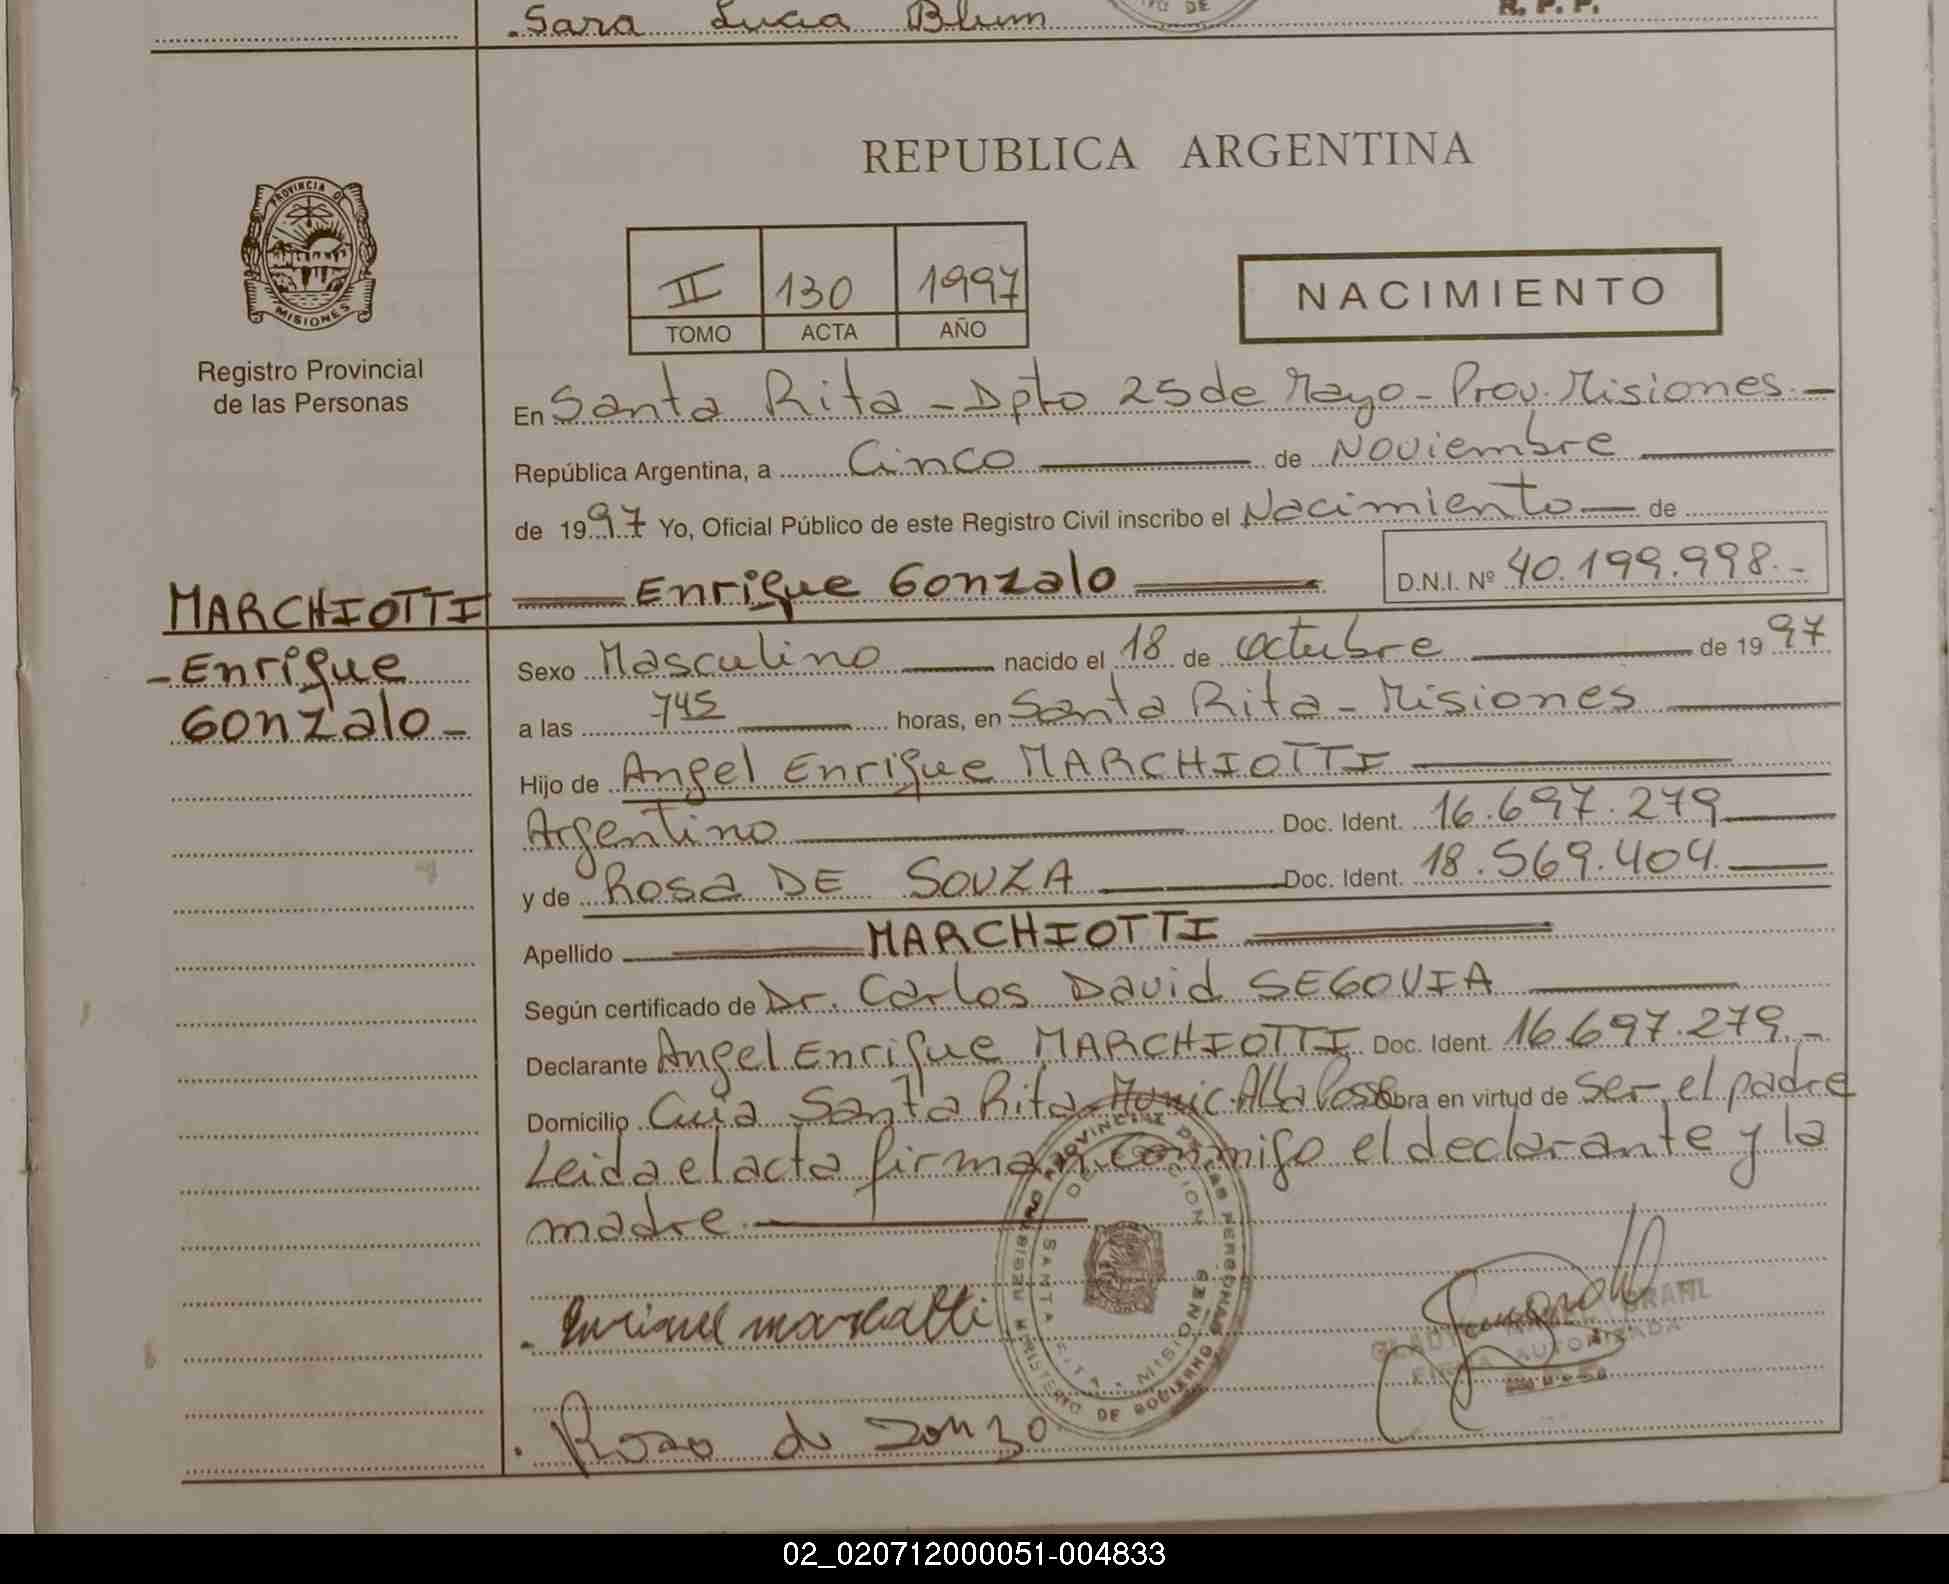 Sara Lucia Blum
R. P. P.
REPUBLICA ARGENTINA
PROVINCIA DE
MISIONES
Registro Provincial
de las Personas
II 130 1997
TOMO ACTA AÑO
NACIMIENTO
En Santa Rita - Dpto 25 de Mayo - Prov. Misiones. -
República Argentina, a Cinco de Noviembre
de 1997 Yo, Oficial Público de este Registro Civil inscribo el Nacimiento de
Enrique Gonzalo
D.N.I. Nº 40.199.998.-
MARCHIOTTI
- Enrique
Gonzalo -
Sexo Masculino nacido el 18 de octubre de 1997
a las 745 horas, en Santa Rita - Misiones
Hijo de Angel Enrique MARCHIOTTI
Argentino Doc. Ident. 16.697.279
y de Rosa DE SOUZA Doc. Ident. 18.569.404.
Apellido MARCHIOTTI
Según certificado de Dr. Carlos David SEGOVIA
Declarante Angel Enrique MARCHIOTTI Doc. Ident. 16.697.279.-
Domicilio Cnia Santa Rita - Munic. Alba Posse Obra en virtud de ser el padre
Leida el acta firman conmigo el declarante y la
madre.
Rosa de Souza
FIRMA AUTORIZADA
02_020712000051-004833